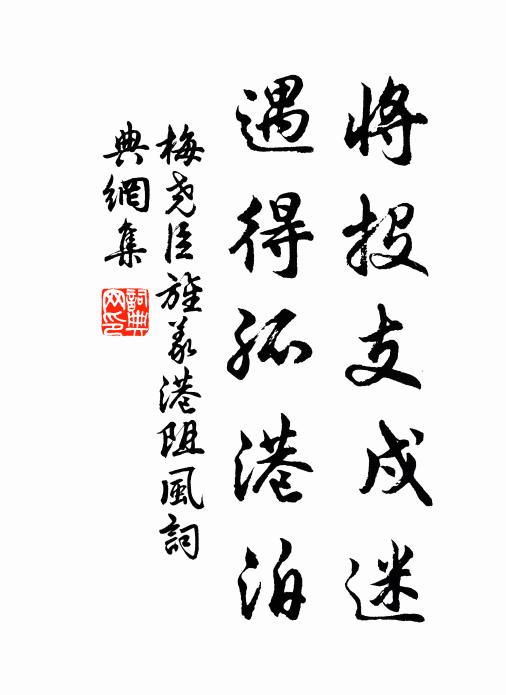 將投支戍迷
遇得孤港泊
梅堯臣旌義港阻風詞
典網集
詞典
网印